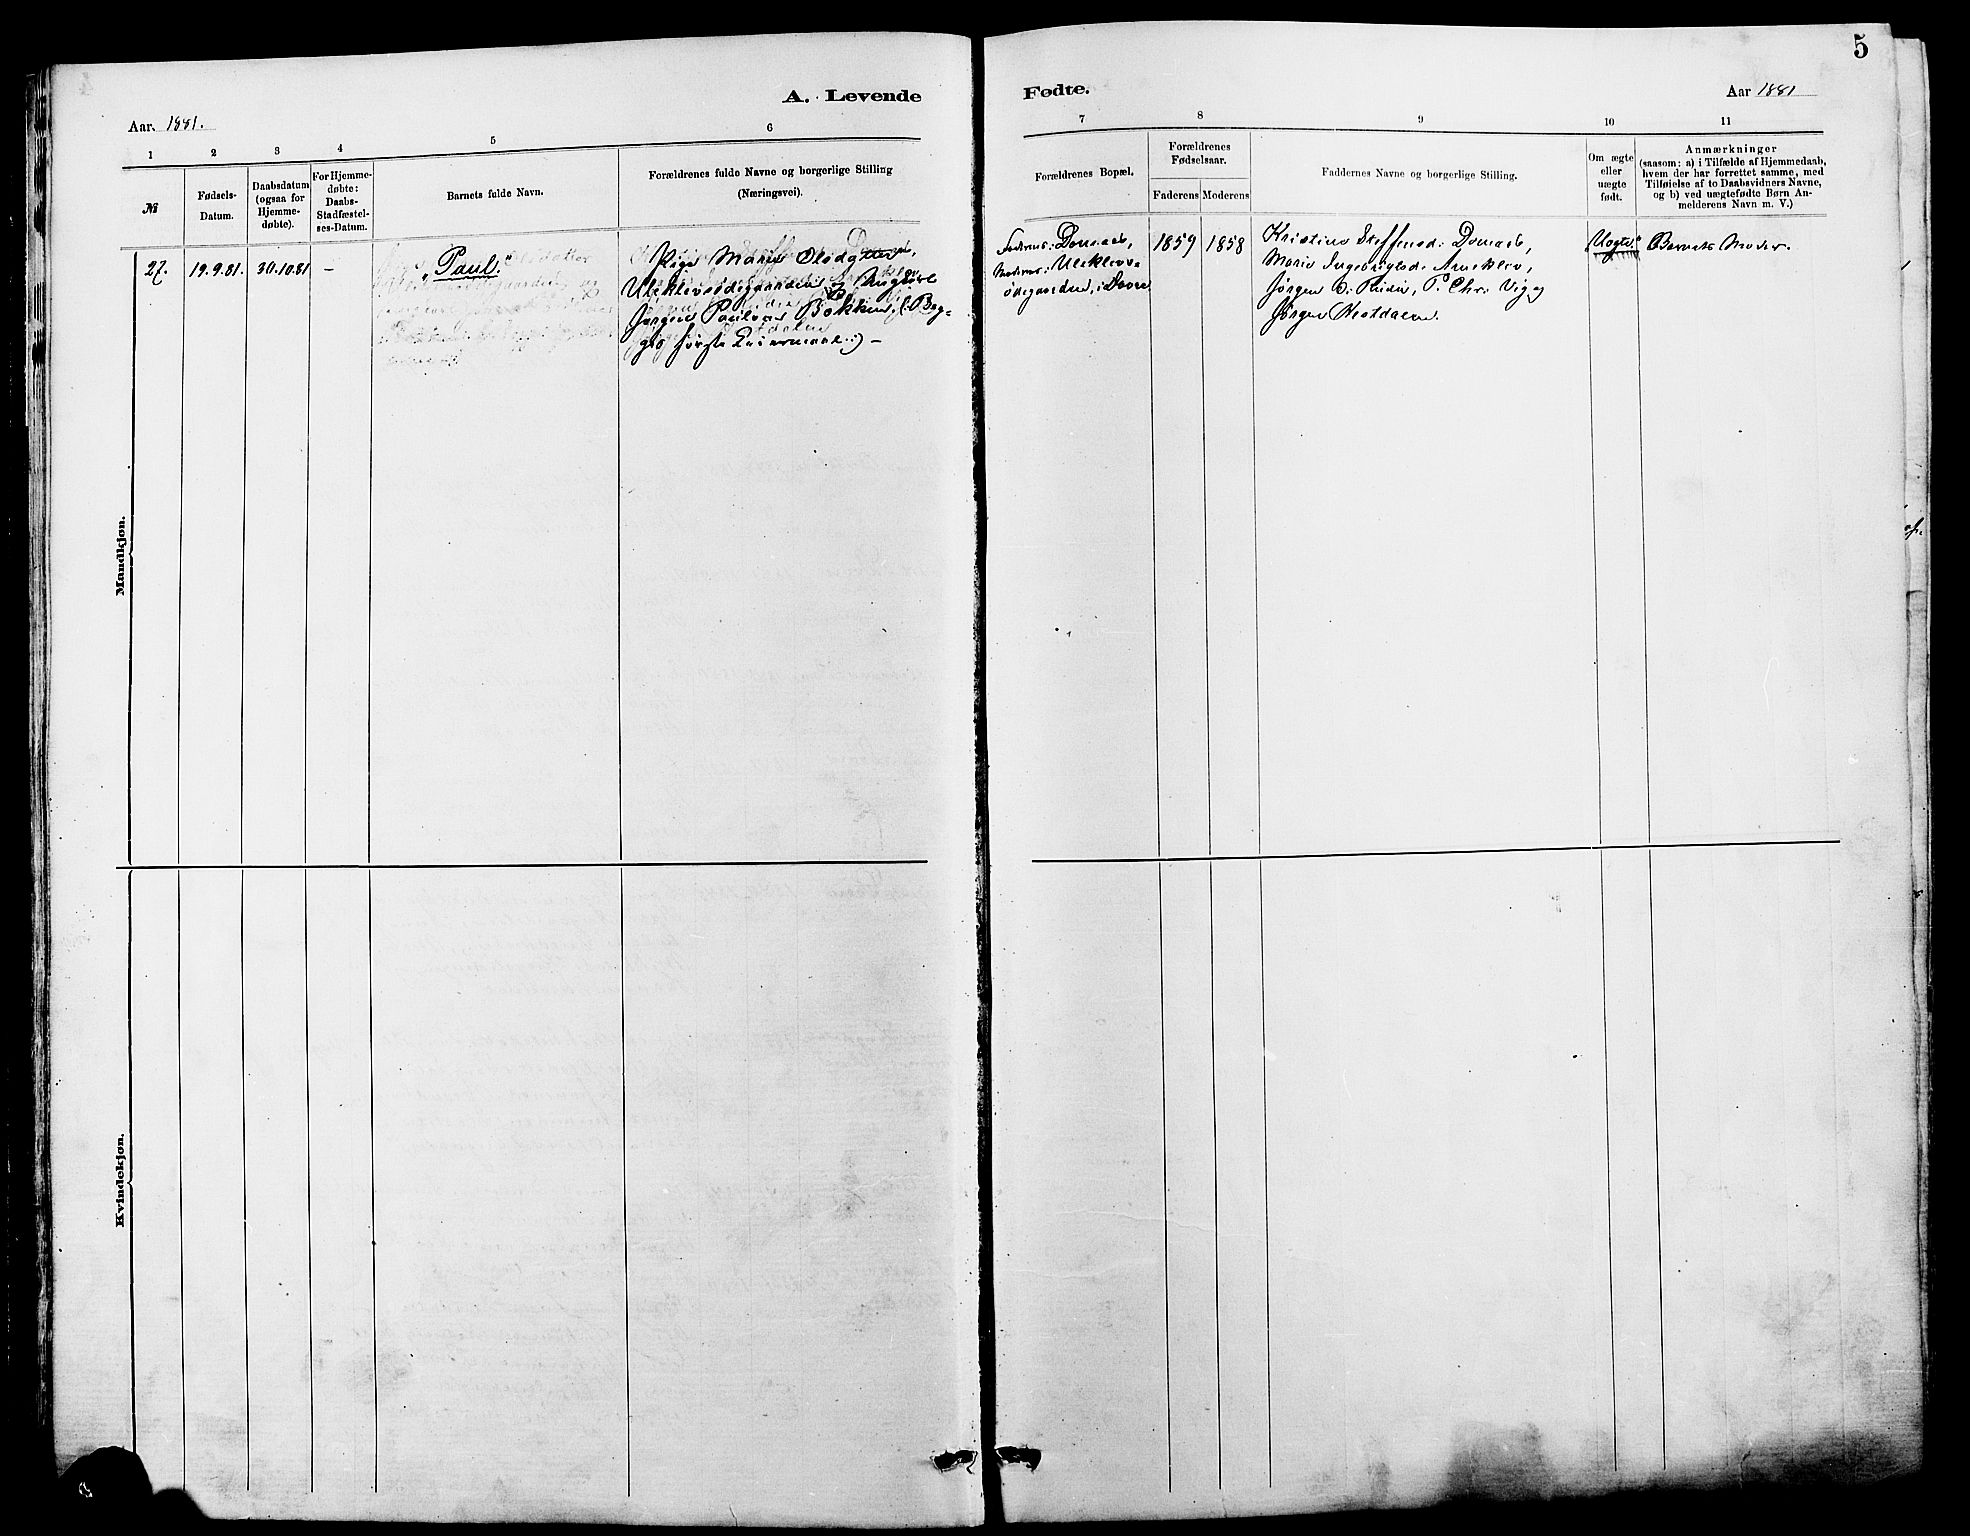 5
A. Levende
Fødte.
Aar. 1881.
Aar 1881
1 2 3 4 5 6
7 8 9 10 11
№
Fødsels-
Datum.
Daabsdatum
(ogsaa for
Hjemme-
døbte).
For Hjemme-
døbte:
Daabs-
Stadfæstel-
ses-Datum.
Barnets fulde Navn.
Forældrenes fulde Navne og borgerlige Stilling
(Næringsvei).
Forældrenes Bopæl.
Forældrenes
Fødselsaar.
Faderens Moderens
Faddernes Navne og borgerlige Stilling.
Om ægte
eller
uægte
født.
Anmærkninger
(saasom: a) i Tilfælde af Hjemmedaab,
hvem der har forrettet samme, med
Tilføielse af to Daabsvidners Navne,
og b) ved uægtefødte Børn An-
melderens Navn m. V.)
Mandkjøn.
27. 19.9.81. 30.10.81 –
"Paul."
Pige Marie Olsdatter
Uleklevsødegaarden og Ungkarl
Jørgen Paulsen Bakken, (: Beg-
ges første Leiermaal :) –
Faderens: Domaas,
Moderens: Uleklevs-
ødegaarden, i Dovre
1859 1858
Kristine Steffensd. Domaas,
Marie Ingebrigtsd. Arneklev,
Jørgen
P. Chr. Vig og
Jørgen
Uægte.
Barnets Moder.
Kvindekjøn.